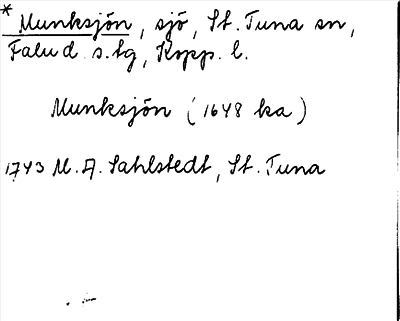 * Munksjön, sjö, St. Tuna sn,
Falu d. s. tg, Kopp. l.
Munksjön (1648 ka)
1743 M. A. Sahlstedt, St. Tuna